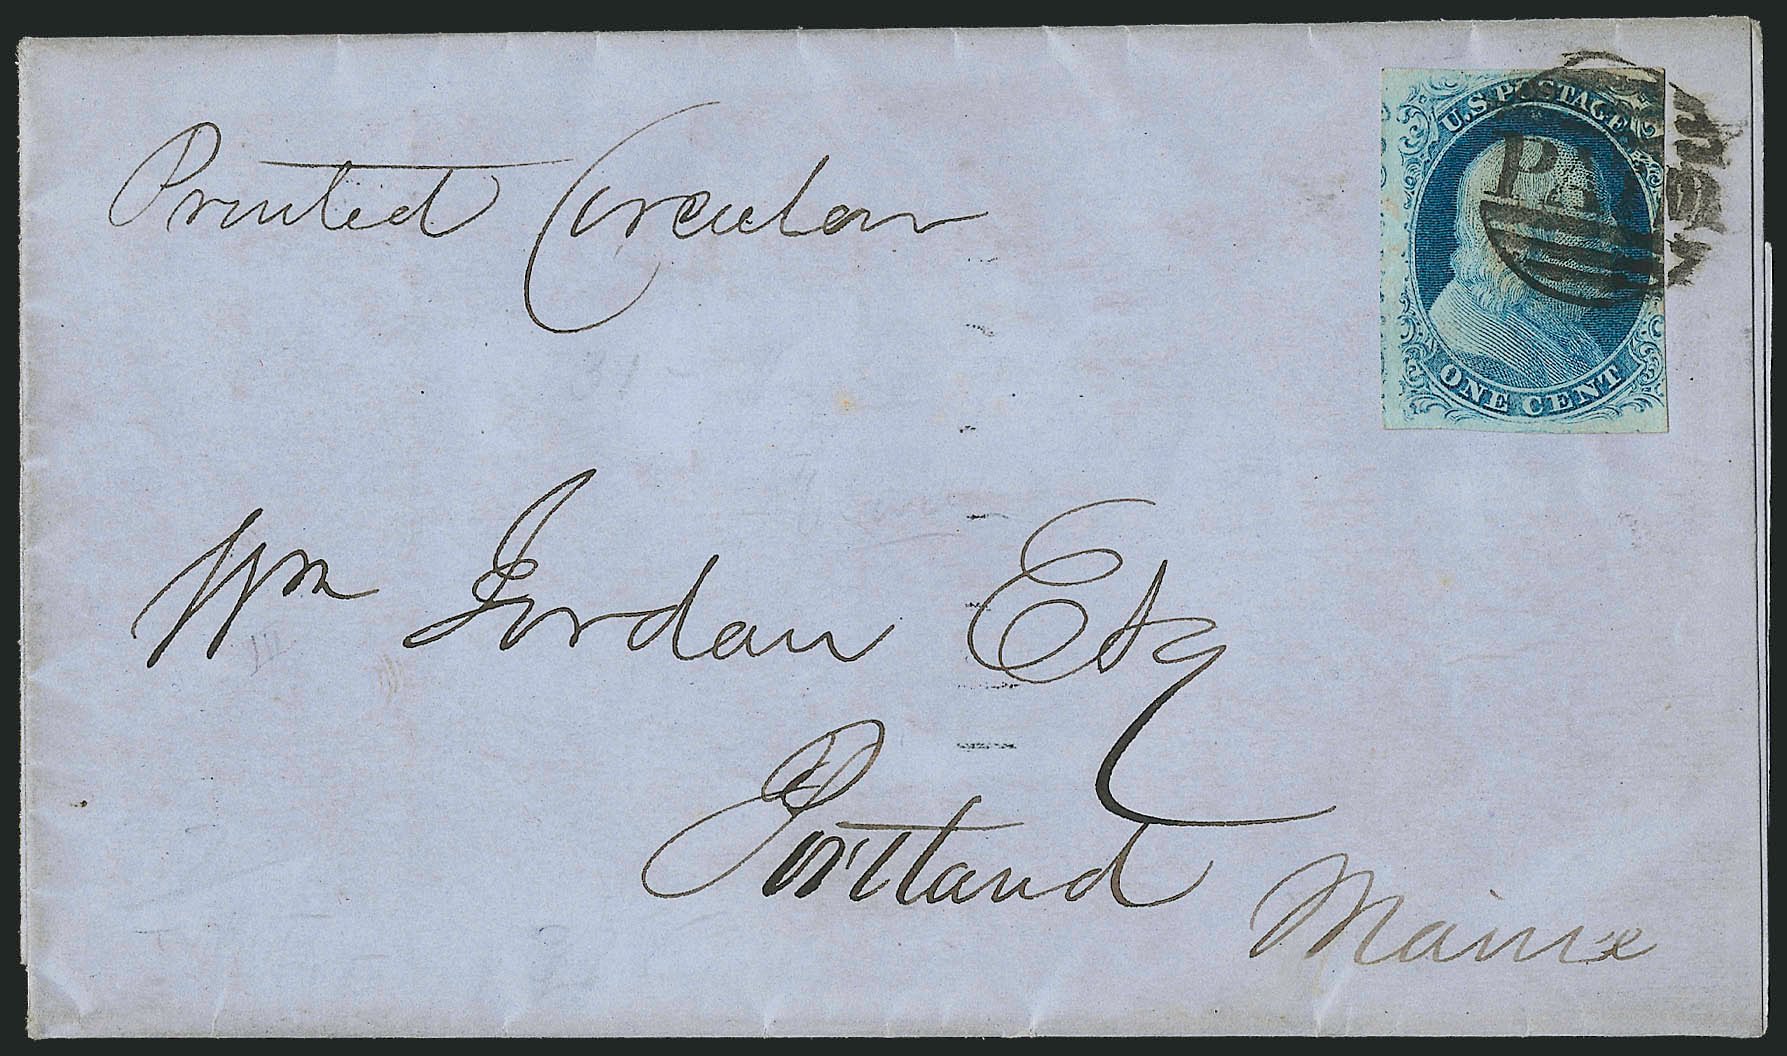 Printed Circular
U.S. POSTAGE
PAID
ONE CENT
Wm Jordan Esq
Portland
Maine